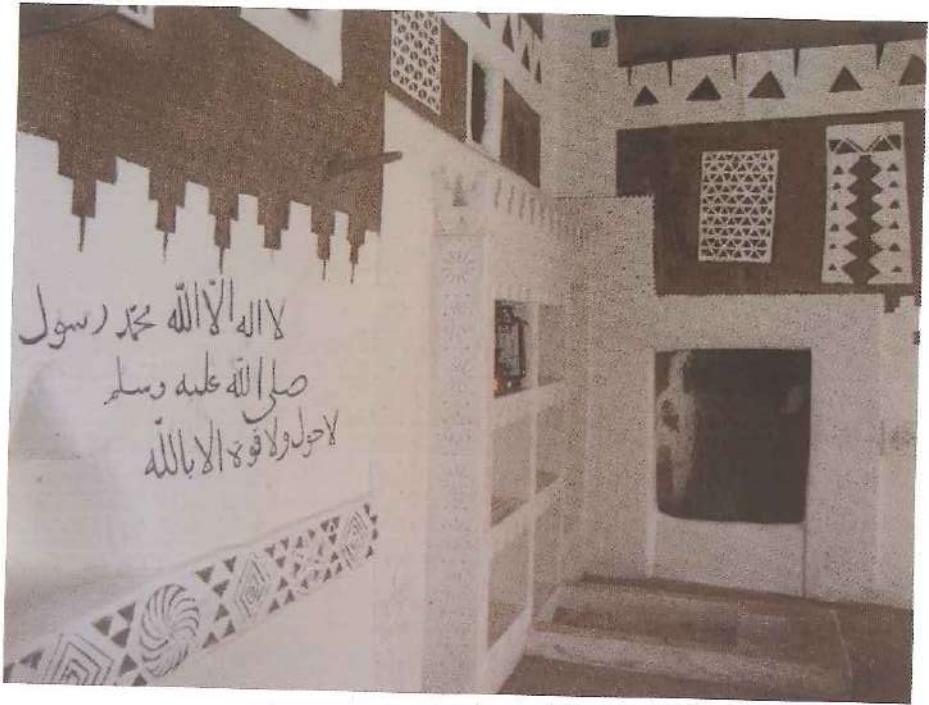 لا اله الا الله محمد رسول
صلى الله عليه وسلم
لا حول ولا قوة الا بالله